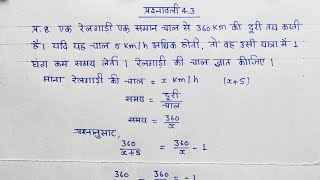 प्रश्नावली 4.3
प्र.8. एक रेलगाड़ी एक समान चाल से 360 Km की दूरी तय करती
है। यदि यह चाल 5 km/h अधिक होती, तो वह उसी यात्रा में 1
घंटा कम समय लेती। रेलगाड़ी की चाल ज्ञात कीजिए।
माना रेलगाड़ी की चाल = x km/h (x+5)
समय = दूरी/चाल
समय = 360/x
प्रश्नानुसार,
360/x+5 = 360/x - 1
360 360 = -1